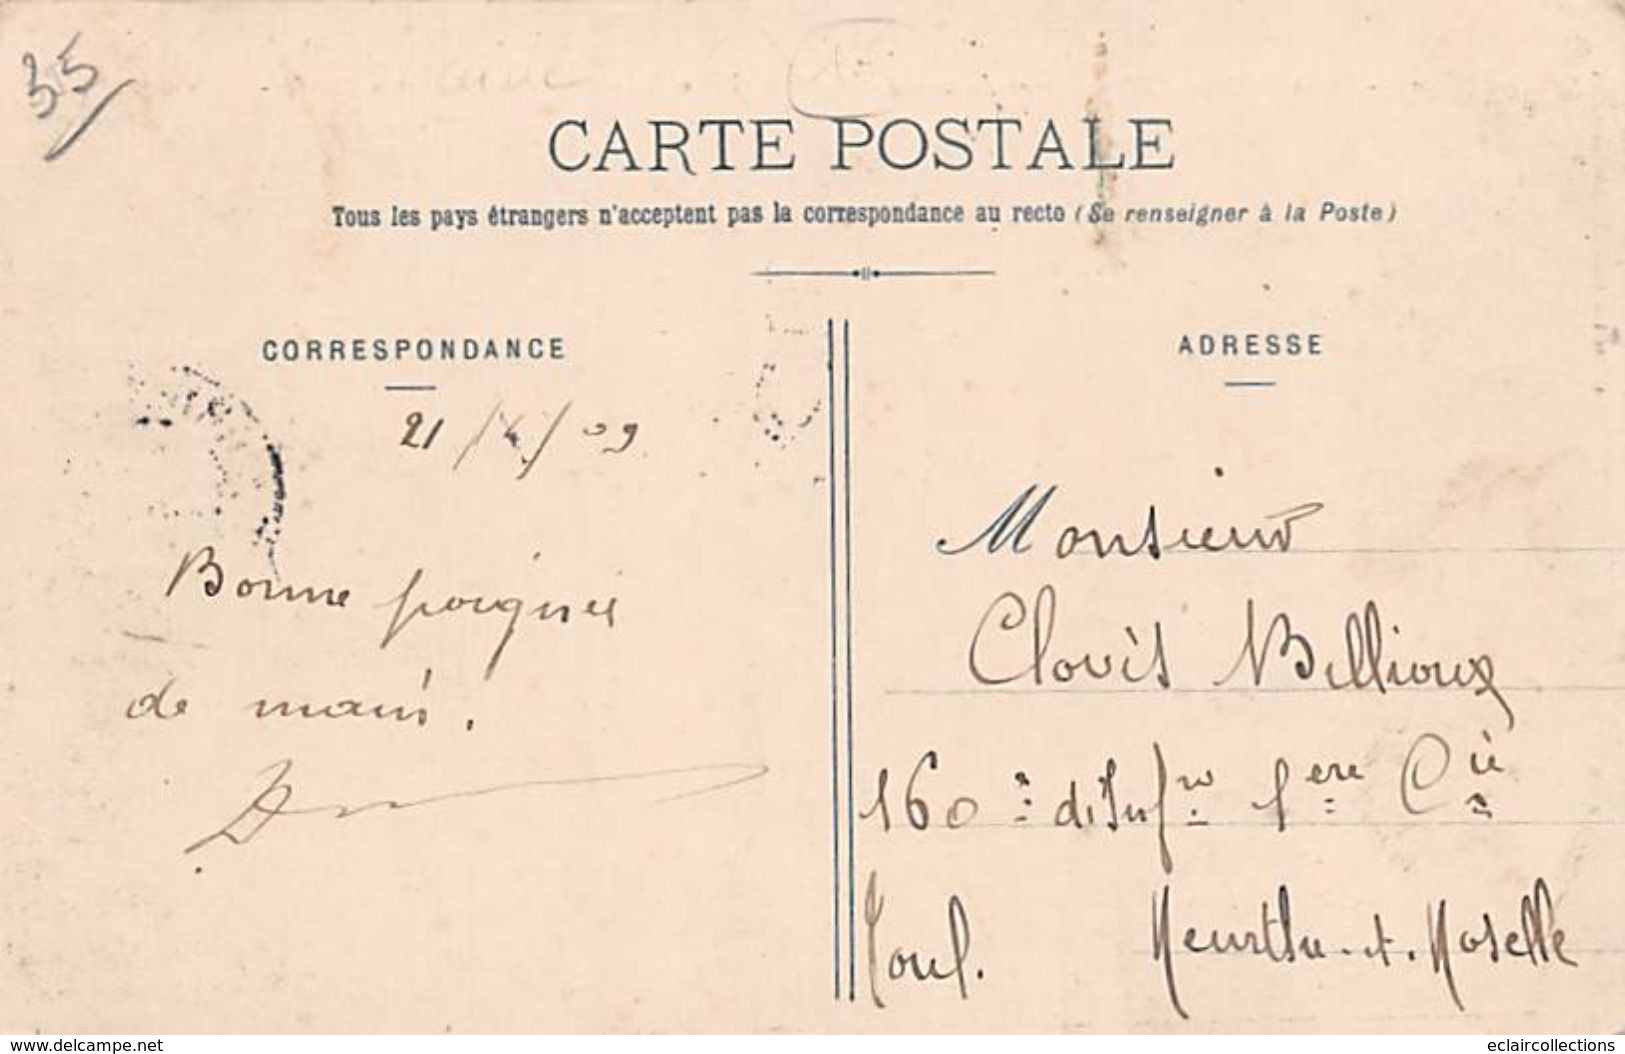 35
CARTE POSTALE
Tous les pays étrangers n'acceptent pas la correspondance au recto (Se renseigner à la Poste)
CORRESPONDANCE
21 / / 09
Bonne poignée
de main.
ADRESSE
Monsieur
Clovis Billioux
160e d'Infie 1ere Cie
Toul. Meurthe-et-Moselle
www.delcampe.net
eclaircollections